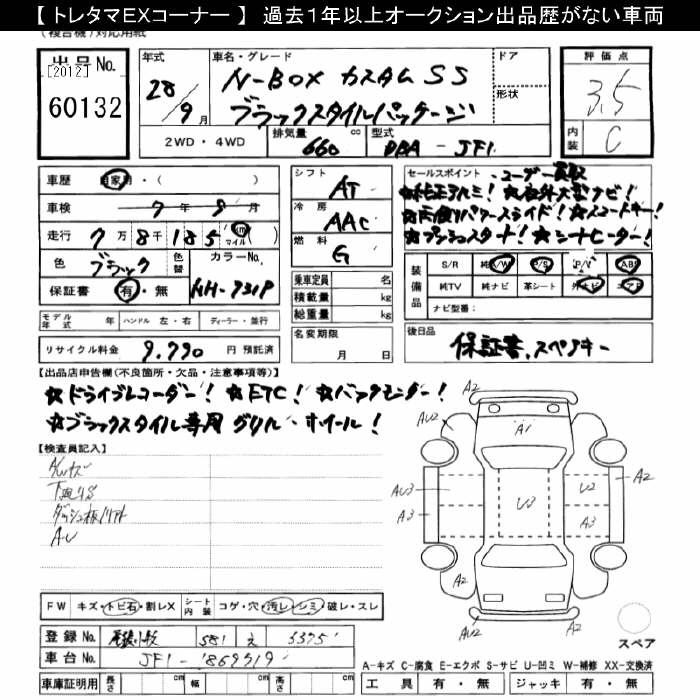 【 トレタマEXコーナー 】 過去1年以上オークション出品歴がない車両
(複合機)対応用紙
出品No.
[2012]
60132
年式
28/9月
車名・グレード
N-BOX カスタム SS
ブラックスタイルパッケージ
ドア
形状
評価点
3.5
内装 C
2WD・4WD
排気量 660 cc
型式 DBA-JF1
車歴 自家用・( )
車検 7年9月
走行 7万8千185 km マイル
色 ブラック 色替 カラーNo. NH-731P
保証書 有・無
モデル年式 年 ハンドル 左・右 ディーラー・並行
リサイクル料金 9.790 円 預託済
シフト AT
冷房 AAC
燃料 G
乗車定員 名
積載量 kg
総重量 kg
名変期限 月 日
セールスポイント ユーザー買取
★純正アルミ! ★社外大型ナビ!
★片側パワースライド! ★スマートキー!
★プッシュスタート! ★シートヒーター!
装備品
S/R 純A/W P/S P/W ABS
純TV 純ナビ 革シート 外ナビ エアB
ナビ型番:
後日品
保証書、スペアキー
【出品店申告欄(不良箇所・欠品・注意事項等)】
★ドライブレコーダー! ★ETC! ★バックモニター!
★ブラックスタイル専用 グリル・ホイール!
【検査員記入】
A/Wキズ
下廻りS
AU
FW キズ・トビ石・割レX シート内装 コゲ・穴・汚レ・シミ・破レ・スレ
登録No. 581 え 3375
車台No. JF1-1869919
車庫証明用 長さ cm 幅 cm 高さ cm
A2
AU2
A1
AU3
A3
U3
U2
A2
A3
A2
AU2
A2
スペア
A-キズ C-腐食 E-エクボ S-サビ U-凹ミ W-補修 XX-交換済
工具 有・無 ジャッキ 有・無